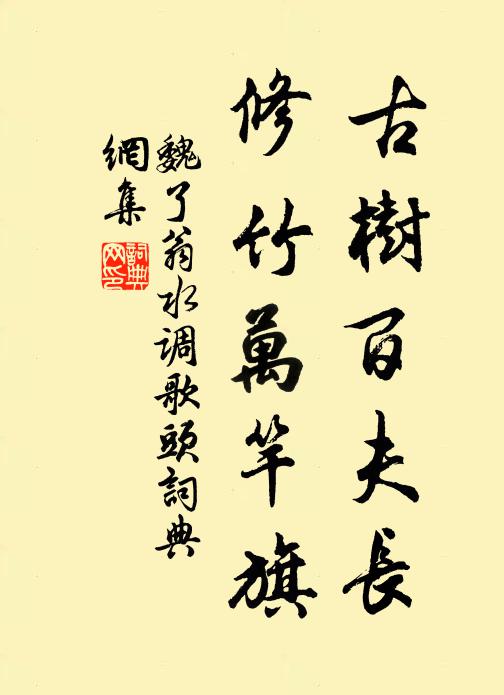 古樹百夫長
修竹萬竿旗
魏了翁水調歌頭詞典
網集
詞典網印